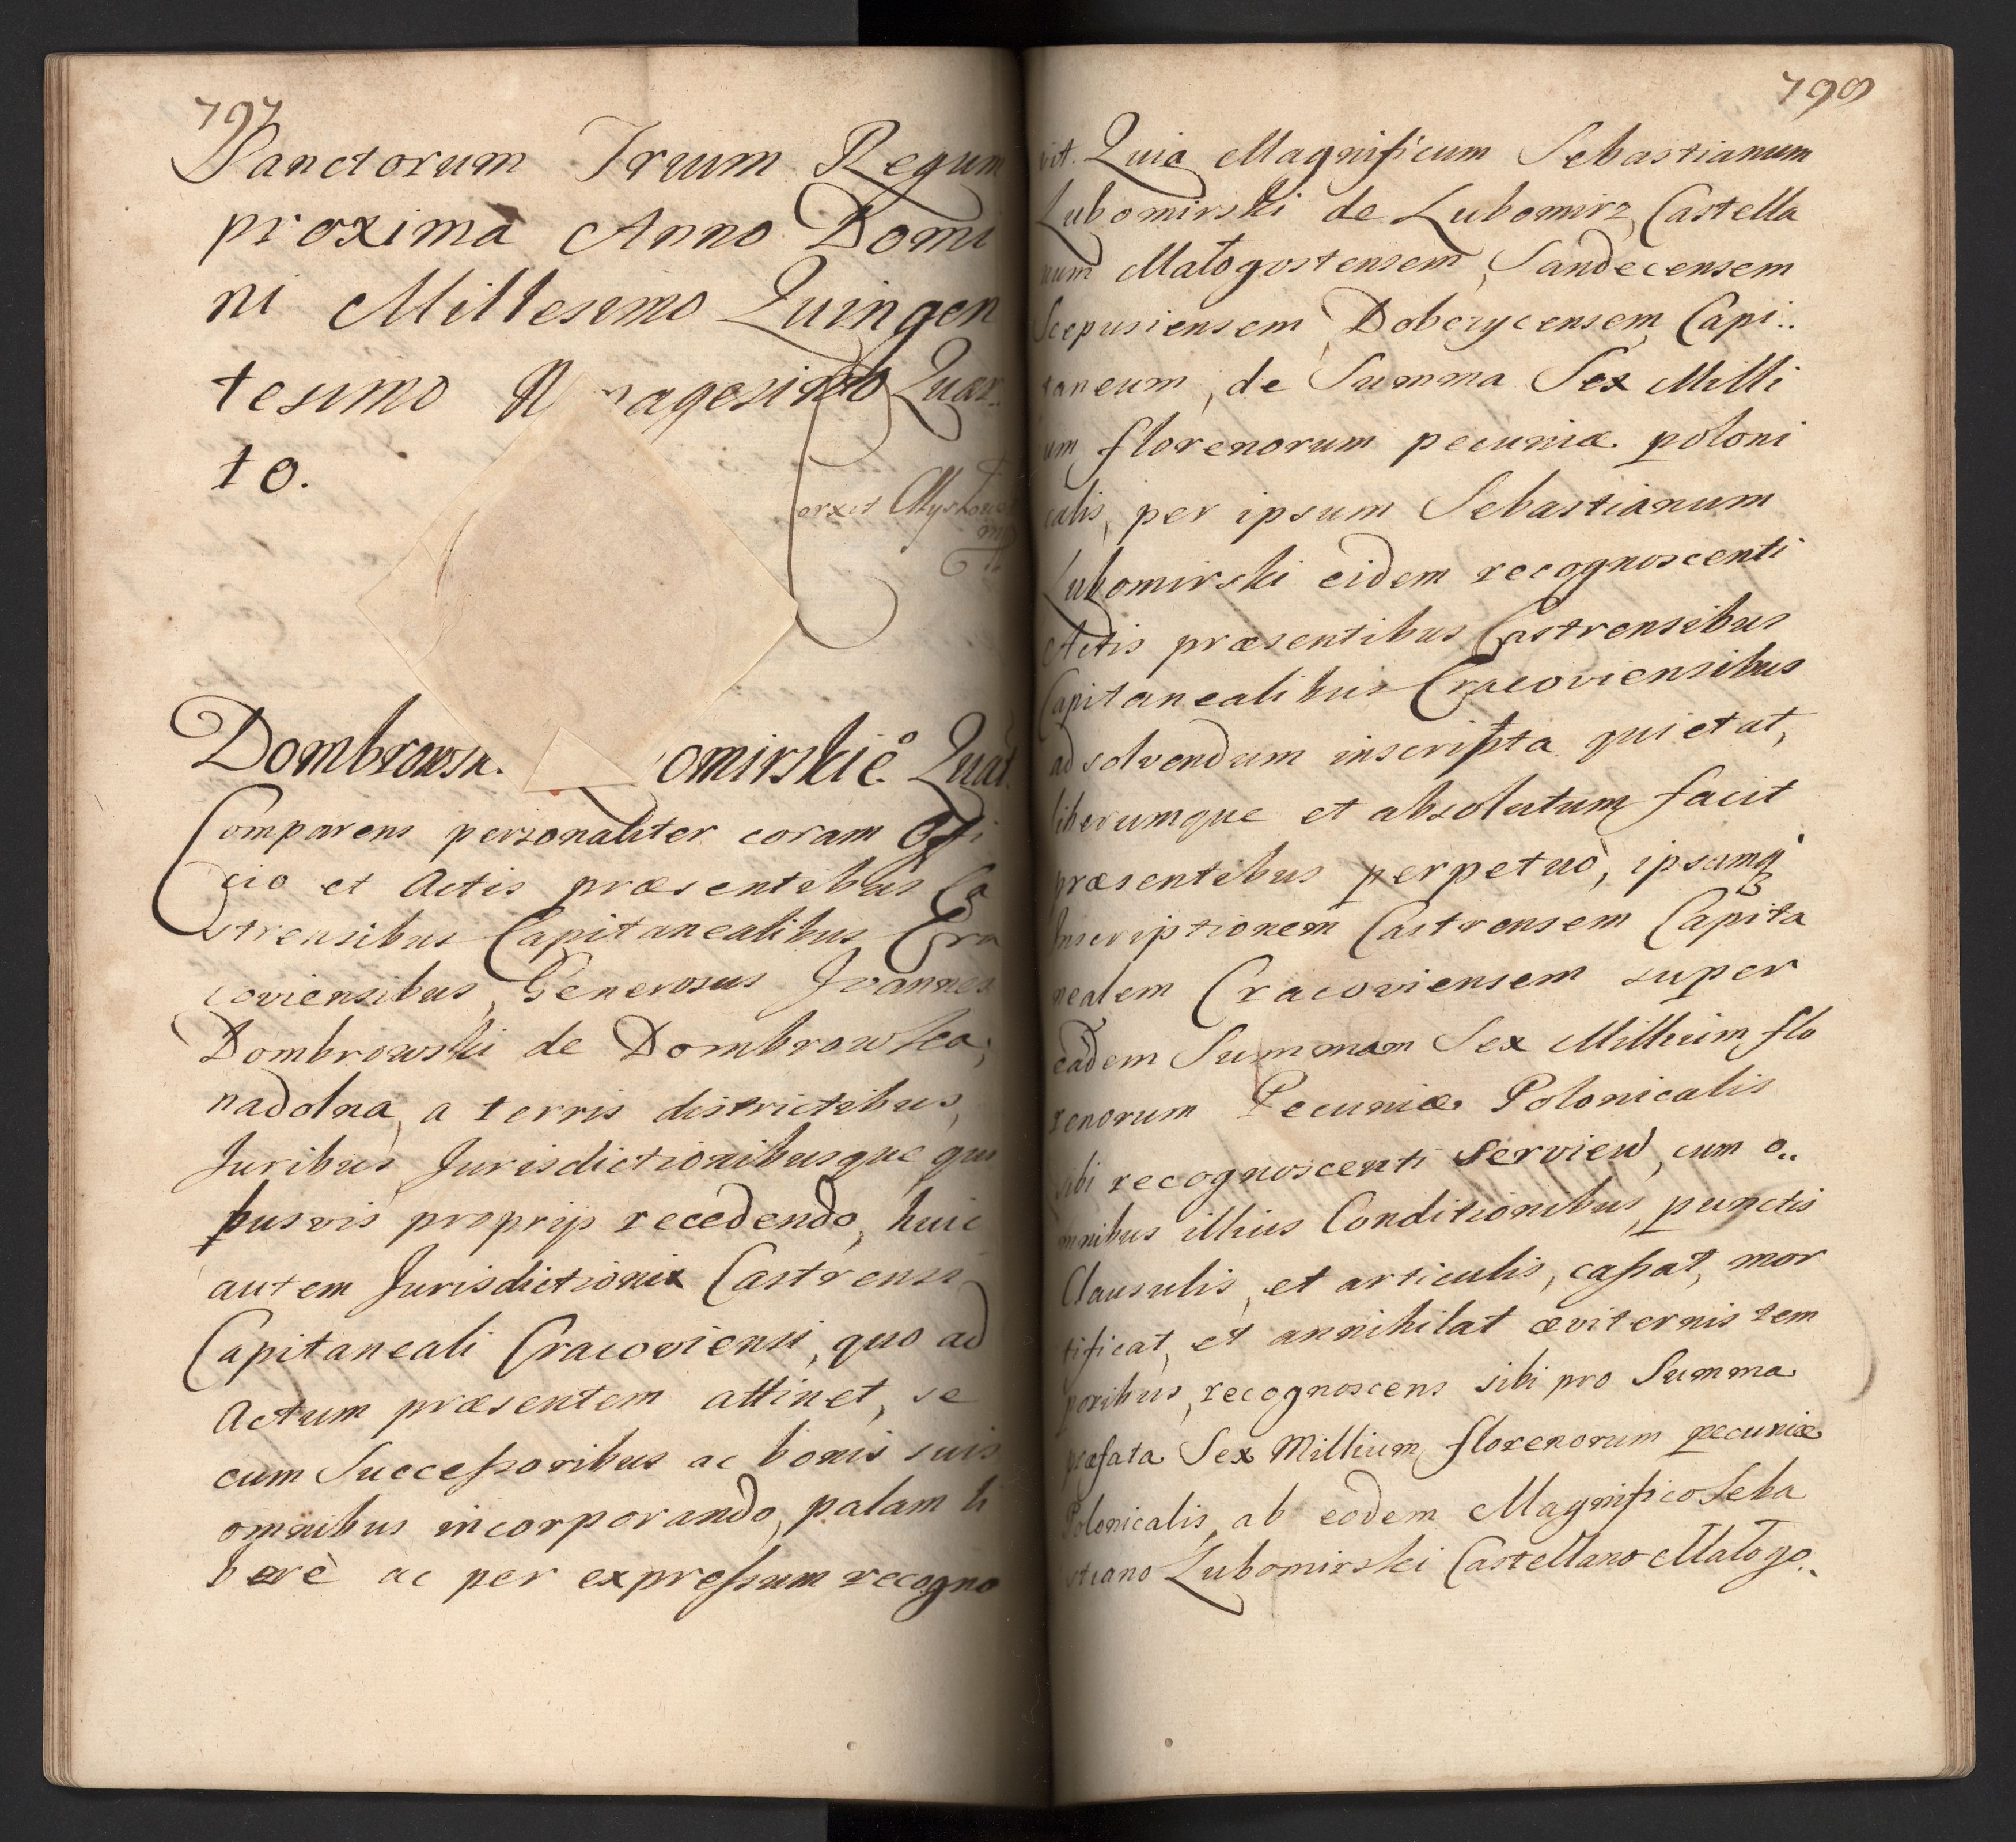 797
Sanctorum Trium Regum
proxima Anno Domi
ni Millesimo Quingen
tesimo N nagesimo Quar..
to.
Dombrowsk. omirskie͠o Quat.
Comparens personaliter coram Offi
cio et Actis præsentibus Ca
strensibus Capitanealibus Cra
coviensibus, Generosus Joannes
Dombrowski de Dombrowka,
nadolna, a terris districtibus,
Juribus Jurisdictionibusque qui
busvis proprijs recedendo, huic
autem Jurisdictioni Castrensi
Capitaneali Cracoviensi, quo ad
Actum præsentem attinet, se
cum Successoribus ac bonis suis
omnibus incorporando, palam li
berè ac per expressum recogno
799
vit. Quia Magnificum Sebastianum
Lubomirski de Lubomirz, Castella
num Małogostensem, Sandecensem
Scepusiensem, Dobczycensem, Capi..
taneum, de Summa Sex Milli
um florenorum pecuniæ poloni
calis, per ipsum Sebastianum
Lubomirski eidem recognoscenti
Actis præsentibus Castrensibus
Capitanealibus Cracoviensibus
ad solvendum inscripta quietat,
liberumque et absolutum facit
præsentibus perpetuò, ipsamq́
Inscriptionem Castrensem Capita
nealem Cracoviensem super
eadem Summam Sex Millium flo
renorum Pecuniæ Polonicalis
sibi recognoscenti servien, cum o..
mnibus illius Conditionibus, punctis
Clausulis, et articulis, cassat, mor
tificat, et annihilat æviternis tem
poribus, recognoscens sibi pro Summa
præfata Sex Millium florenorum pecuniæ
Polonicalis, ab eodem Magnifico Seba
stiano Lubomirski Castellano Małogo..